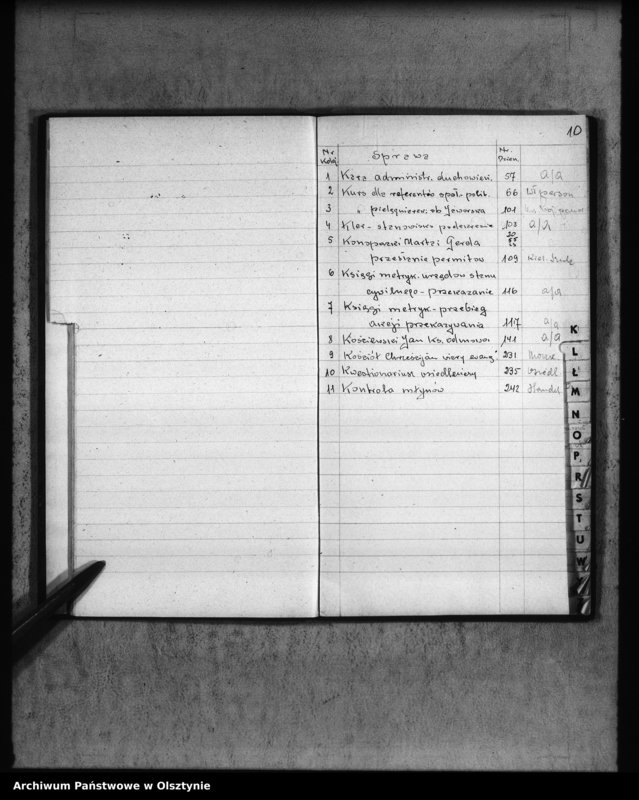 10
Nr. Kolej. Sprawa Nr. Dzien.
1 Kara administr. duchowień. 57 a/a
2 Kurs dla referentów społ-polit. 66 W person
3 " pielęgniarek ob Jaworska 101
4 Kler - stanowisko 103 a/a
5 Gerda
109
6 Księgi metryk. urzędów stanu
cywilnego - przekazanie 116 a/a
7 Księgi metryk - przebieg
akcji przekazywania 117 a/a
8 Kościewski Jan ks. odmowa 141 a/a
9 Kościół Chrześcijan wiary ewang. 231
10 Kwestionariusz osiedleńczy 235 Osiedl
11 Kontrola młynów 242 Handel
K
L
Ł
M
N
O
P
R
S
T
U
W
Archiwum Państwowe w Olsztynie